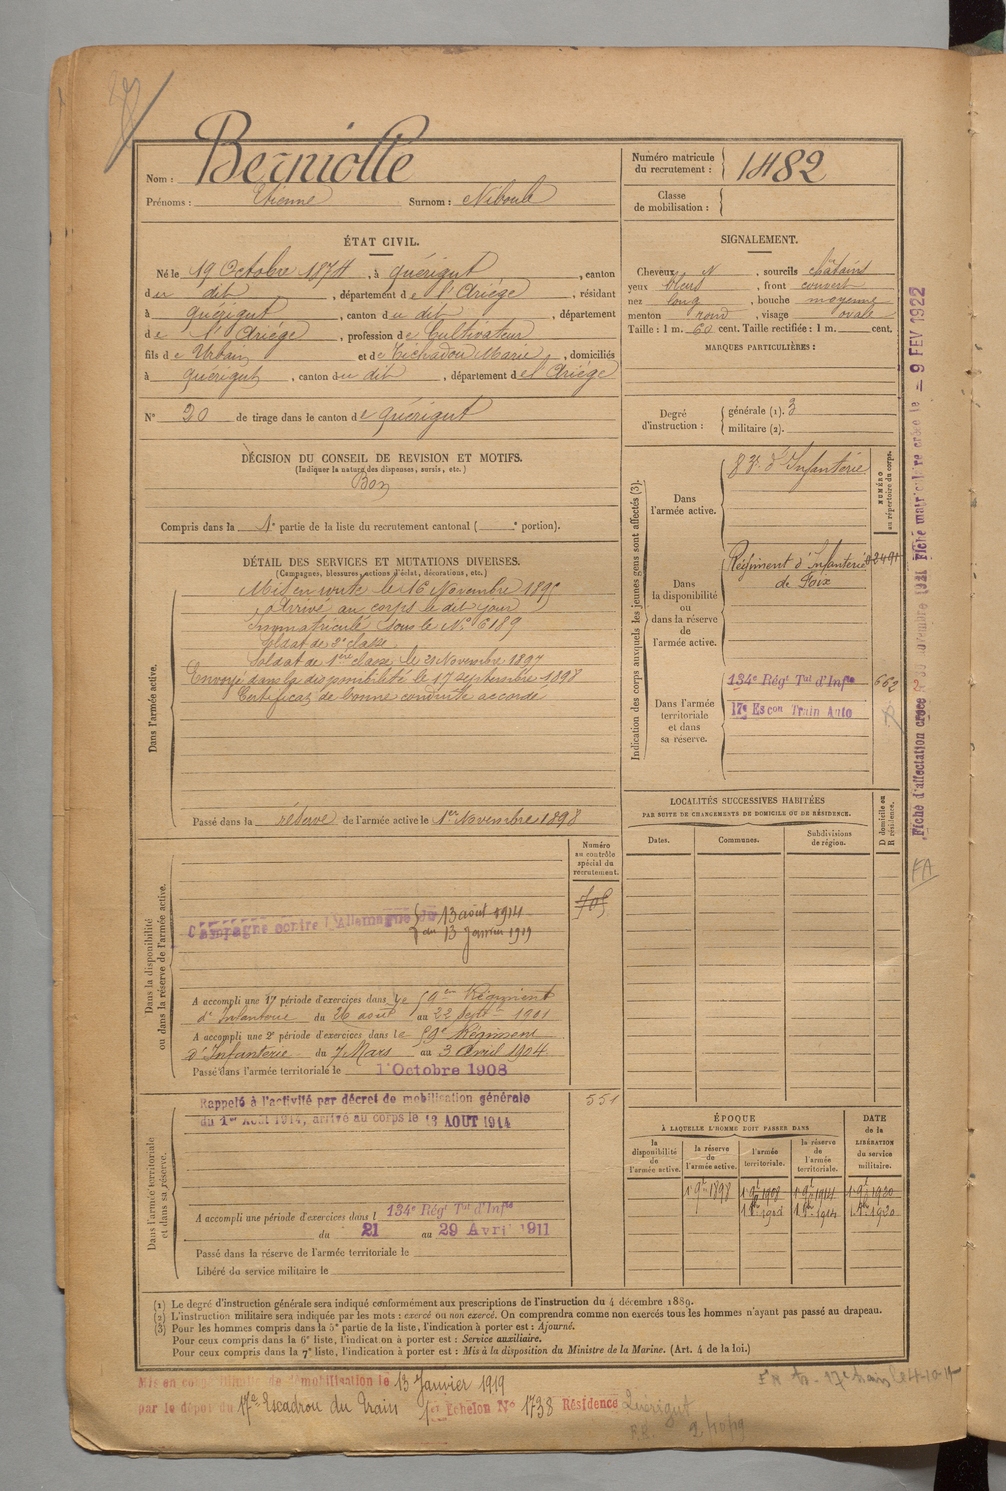 Nom : Berniolle
Prénoms : Etienne Surnom : Niboula
Numéro matricule du recrutement : 1482
Classe de mobilisation :
ÉTAT CIVIL.
Né le 19 Octobre 1874, à Quérigut, canton
du dit, département de l'Ariége, résidant
à Quérigut, canton du dit, département
de l'Ariége, profession de Cultivateur
fils de Urbain et de Téchadou Marie, domiciliés
à Quérigut, canton du dit, département de l'Ariége
N° 20 de tirage dans le canton de Quérigut
SIGNALEMENT.
Cheveux N, sourcils châtains
yeux bleus, front couvert
nez long, bouche moyenne
menton rond, visage ovale
Taille : 1 m. 60 cent. Taille rectifiée : 1 m. cent.
MARQUES PARTICULIÈRES :
Degré d'instruction : générale (1). 3
militaire (2).
DÉCISION DU CONSEIL DE REVISION ET MOTIFS.
(Indiquer la nature des dispenses, sursis, etc.)
Bon
Compris dans la 1e partie de la liste du recrutement cantonal ( e portion).
DÉTAIL DES SERVICES ET MUTATIONS DIVERSES.
(Campagnes, blessures, actions d'éclat, décorations, etc.)
Dans l'armée active.
Mis en route le 16 Novembre 1895
Arrivé au corps le dit jour
Immatriculé sous le N° 6189
Soldat de 2e classe
Soldat de 1ère classe le 21 Novembre 1897
Envoyé dans la disponibilité le 17 septembre 1898
Certificat de bonne conduite accordé
Passé dans la réserve de l'armée active le 1er Novembre 1898
Indication des corps auxquels les jeunes gens sont affectés (3).
NUMÉRO au répertoire du corps.
Dans l'armée active.
83e d'Infanterie
Dans la disponibilité ou dans la réserve de l'armée active.
Régiment d'Infanterie 02491
de Foix
Dans l'armée territoriale et dans sa réserve.
134e Régt Tal d'Infie 662
17e Escon Train Auto
LOCALITÉS SUCCESSIVES HABITÉES
PAR SUITE DE CHANGEMENTS DE DOMICILE OU DE RÉSIDENCE.
Dates. Communes. Subdivisions de région. D domicile ou R résidence.
Dans la disponibilité ou dans la réserve de l'armée active.
Numéro au contrôle spécial du recrutement.
Campagne contre l'Allemagne du 13 août 1914
au 13 Janvier 1919
A accompli une 1e période d'exercices dans le 59eme Régiment
d'Infanterie du 26 août au 22 Septe 1901
A accompli une 2e période d'exercices dans le 59e Régiment
d'Infanterie du 7 Mars au 3 Avril 1904
Passé dans l'armée territoriale le 1 Octobre 1908
Dans l'armée territoriale et dans sa réserve.
Rappelé à l'activité par décret de mobilisation générale 551
du 1er Aout 1914, arrivé au corps le 13 AOUT 1914
A accompli une période d'exercices dans l 134e Régt Tal d'Infie
du 21 au 29 Avril 1911
Passé dans la réserve de l'armée territoriale le
Libéré du service militaire le
ÉPOQUE
À LAQUELLE L'HOMME DOIT PASSER DANS
la disponibilité de l'armée active.
la réserve de l'armée active.
l'armée territoriale.
la réserve de l'armée territoriale.
DATE de la LIBÉRATION du service militaire.
1 9bre 1898 1 9bre 1908 1 9bre 1914 1 9bre 1920
1 8bre 1908 1 8bre 1914 1 8bre 1920
(1) Le degré d'instruction générale sera indiqué conformément aux prescriptions de l'instruction du 4 décembre 1889.
(2) L'instruction militaire sera indiquée par les mots : exercé ou non exercé. On comprendra comme non exercés tous les hommes n'ayant pas passé au drapeau.
(3) Pour les hommes compris dans la 5e partie de la liste, l'indication à porter est : Ajourné.
Pour ceux compris dans la 6e liste, l'indication à porter est : Service auxiliaire.
Pour ceux compris dans la 7e liste, l'indication à porter est : Mis à la disposition du Ministre de la Marine. (Art. 4 de la loi.)
Mis en congé illimité de démobilisation le 13 Janvier 1919
par le dépôt du 17e Escadron du Train 1er Echelon N° 1738 Résidence Quérigut
F.R. 2/10/19
Fiche matriculaire créée le = 9 FEV 1922
FA